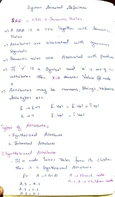 Syntax Directed Definition
SDD = CFG + Semantic Rules
→ A SDD is a CFG together with Semantic
Rules
→ Attributes are associated with Grammar
Symbols
→ Semantic rules are Associated with productions
→ If 'x' is a Symbol and 'a' is one of
attributes then X.a denotes value at node
→ Attributes may be numbers, Strings, References,
datatypes etc.
Types of Attributes,
1. Synthesized Attribute
2. Inherited Attribute
1. Synthesized Attribute
If a node takes Value from its children
then it is Synthesized Attribute